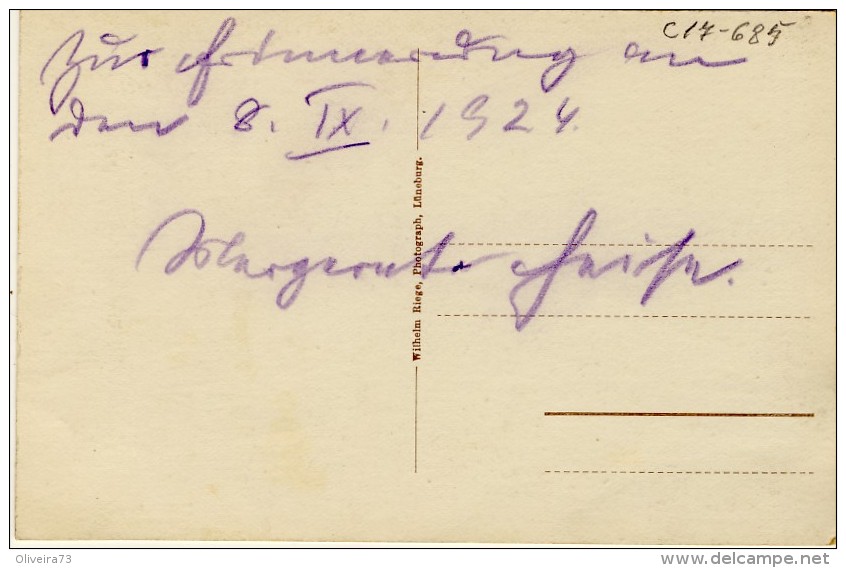 C17-685
Zur Erinnerung an
den 8. IX. 1924.
Wilhelm Riege, Photograph, Lüneburg.
Margarete Heise.
Oliveira73
www.delcampe.net